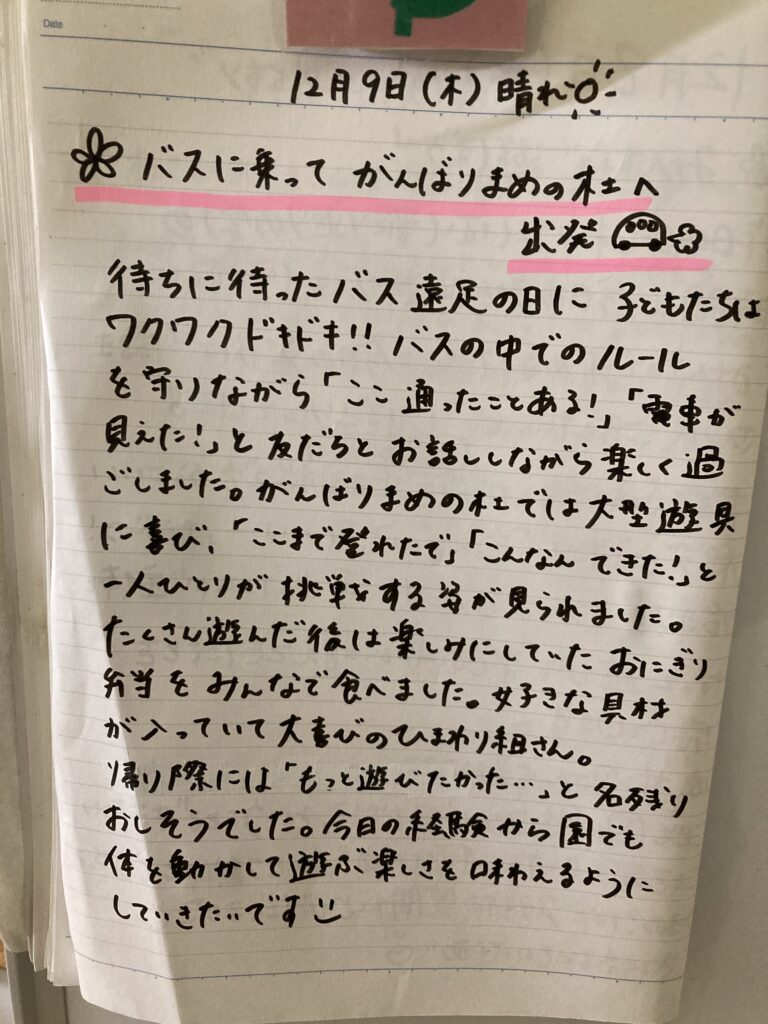 Date
12月9日(木) 晴れ
バスに乗って がんばりまめの杜へ
出発
待ちに待ったバス遠足の日に 子どもたちは
ワクワクドキドキ!! バスの中でのルール
を守りながら「ここ通ったことある!」「電車が
見えた!」と友だちとお話ししながら楽しく過
ごしました。がんばりまめの杜では大型遊具
に喜び、「ここまで登れたで」「こんなんできた!」と
一人ひとりが挑戦をする姿が見られました。
たくさん遊んだ後は楽しみにしていたおにぎり
弁当をみんなで食べました。好きな具材
が入っていて大喜びのひまわり組さん。
帰り際には「もっと遊びたかった…」と名残り
おしそうでした。今日の経験から園でも
体を動かして遊ぶ楽しさを味わえるように
していきたいです